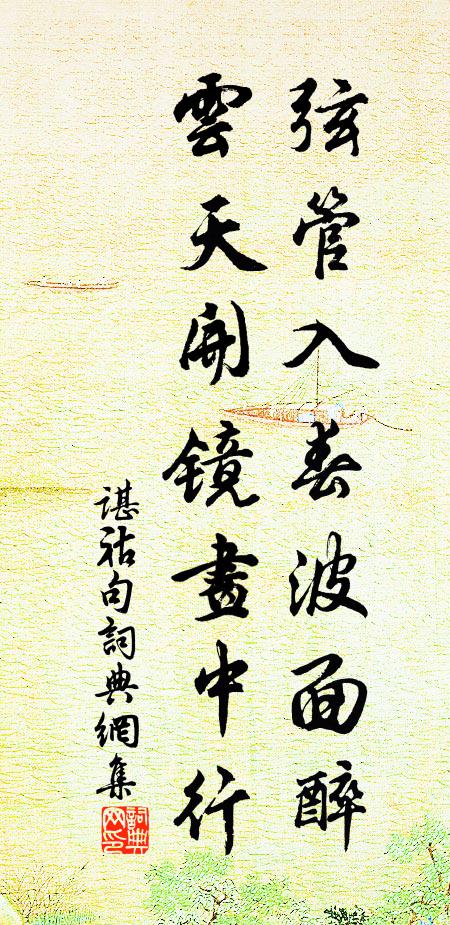 弦管入春波面醉
雲天開鏡畫中行
諶祜句詞典網集
詞典网印